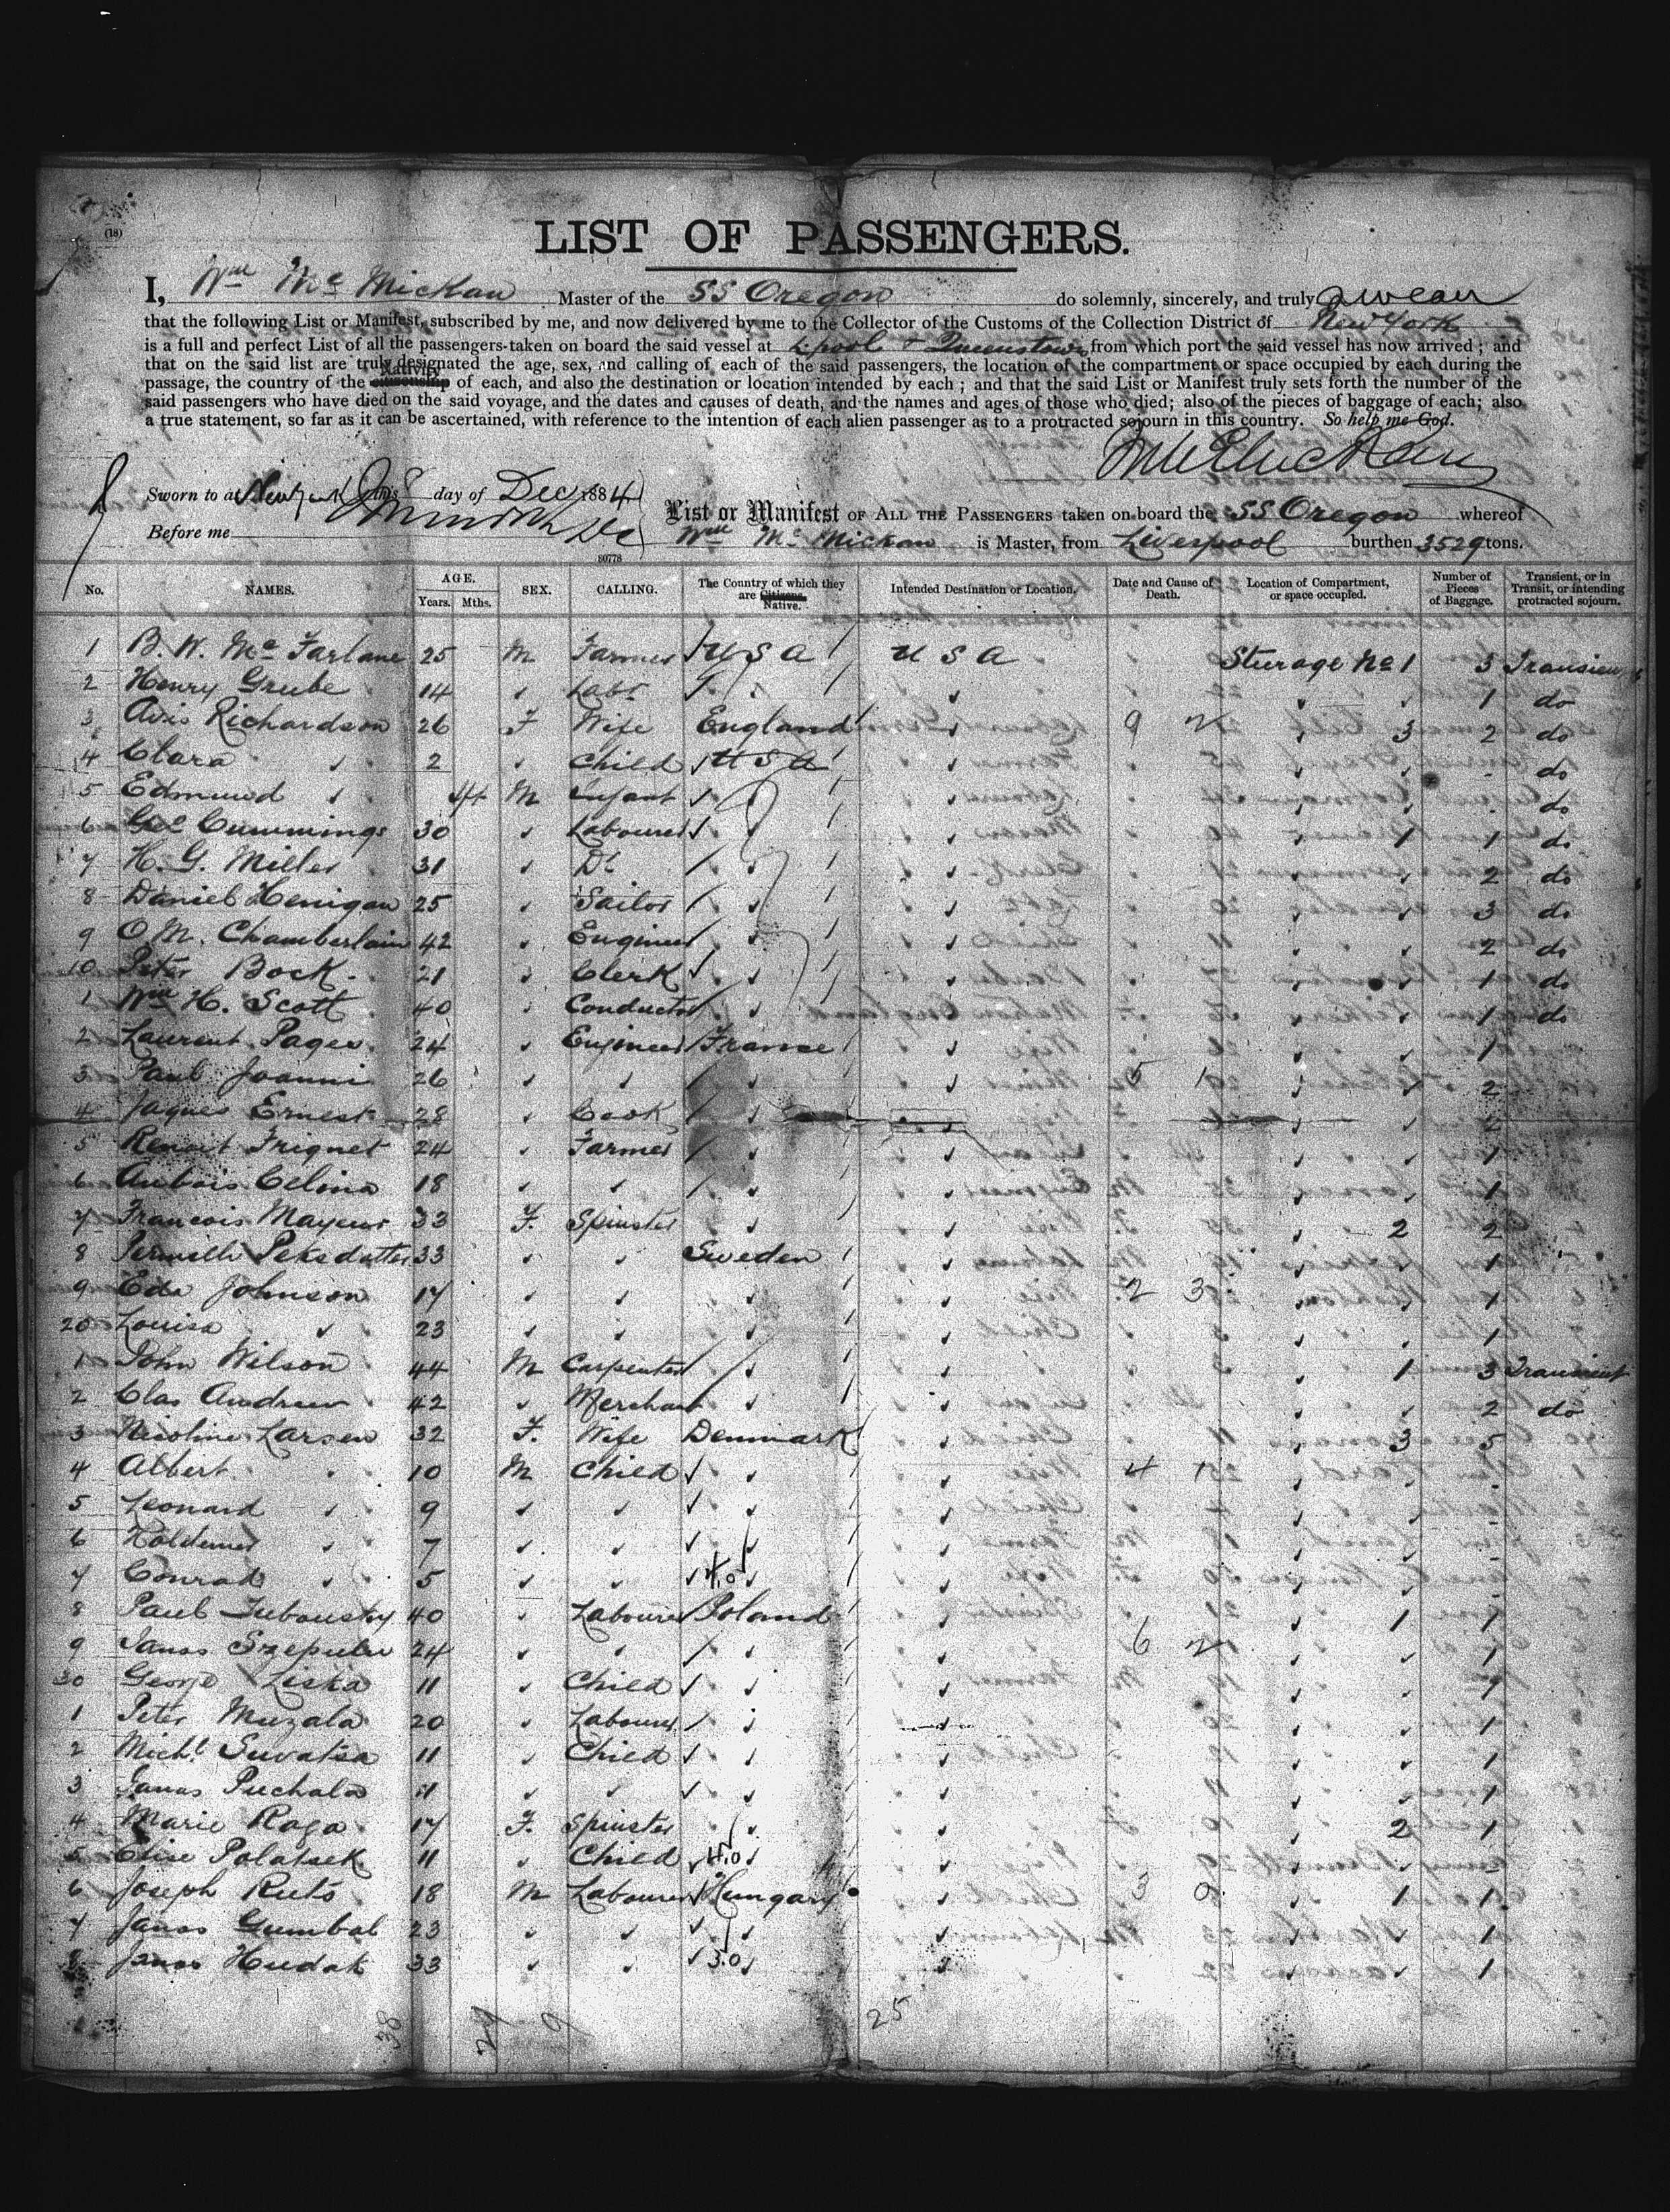 (18)
LIST OF PASSENGERS.
I, Wm Mc Mickan Master of the SS Oregon do solemnly, sincerely, and truly swear
that the following List or Manifest, subscribed by me, and now delivered by me to the Collector of the Customs of the Collection District of New York
is a full and perfect List of all the passengers taken on board the said vessel at L'pool + Queenstown from which port the said vessel has now arrived; and
that on the said list are truly designated the age, sex, and calling of each of the said passengers, the location of the compartment or space occupied by each during the
Nativity
passage, the country of the citizenship of each, and also the destination or location intended by each; and that the said List or Manifest truly sets forth the number of the
said passengers who have died on the said voyage, and the dates and causes of death, and the names and ages of those who died; also of the pieces of baggage of each; also
a true statement, so far as it can be ascertained, with reference to the intention of each alien passenger as to a protracted sojourn in this country. So help me God.
Sworn to at New York this 8 day of Dec 1884
List or Manifest OF ALL THE PASSENGERS taken on board the SS Oregon whereof
Before me
Wm Mc Mickan is Master, from Liverpool burthen 3529 tons.
80778
No. NAMES. AGE. Years. Mths. SEX. CALLING. The Country of which they are Citizens. Native. Intended Destination or Location. Date and Cause of Death. Location of Compartment, or space occupied. Number of Pieces of Baggage. Transient, or in Transit, or intending protracted sojourn.
1 B. W. Mc Farlane 25 M Farmer U S A U S A Sturage No 1 3 Transient
2 Henry Grube 14 Labr 1 do
3 Avis Richardson 26 F Wife England 3 2 do
4 Clara 2 Child U S A do
5 Edmund M Infant do
6 Geo Cummings 30 Labourer 1 1 do
7 H. G. Miller 31 Do 2 do
8 Daniel Henigan 25 Sailor 3 do
9 O. M. Chamberlain 42 Engineer 2 do
10 Peter Bock 21 Clerk 1 do
1 Wm H. Scott 40 Conductor 1 do
2 Laurent Pages 24 Engineer France 1
3 Paul Joanni 26 2
4 Jaques Ernest 28 Cook 2
5 Benoit Friquet 24 Farmer 1
6 Aubois Celina 18 1
7 Francois Mayeur 33 F. Spinster 2 2
8 Pernille Peksdatter 33 Sweden 1
9 Eda Johnson 17 1
20 Louisa 23 1
1 John Wilson 44 M Carpenter 1 3 Transient
2 Clas Andrew 42 Merchant 2 do
3 Nicoline Larsen 32 F. Wife Denmark 3 5
4 Albert 10 M Child
5 Leonard 9
6 Holdemer 7
7 Conrad 5 4.0
8 Paul Luboustry 40 Labourer Poland 1 1
9 Janos Szepulu 24 1
30 George Liska 11 Child 1
1 Peter Muzala 20 Labourer 1
2 Michl Suvatsa 11 Child 1
3 Janos Puchala 11 1
4 Marie Raga 17 F. Spinster 2 1
5 Elise Polatsek 11 Child 4.0
6 Joseph Ruts 18 M Labourer Hungary 1 1
7 Janos Gumbal 23 1
8 Janos Hudak 33 3.0 1
38 29 9 25